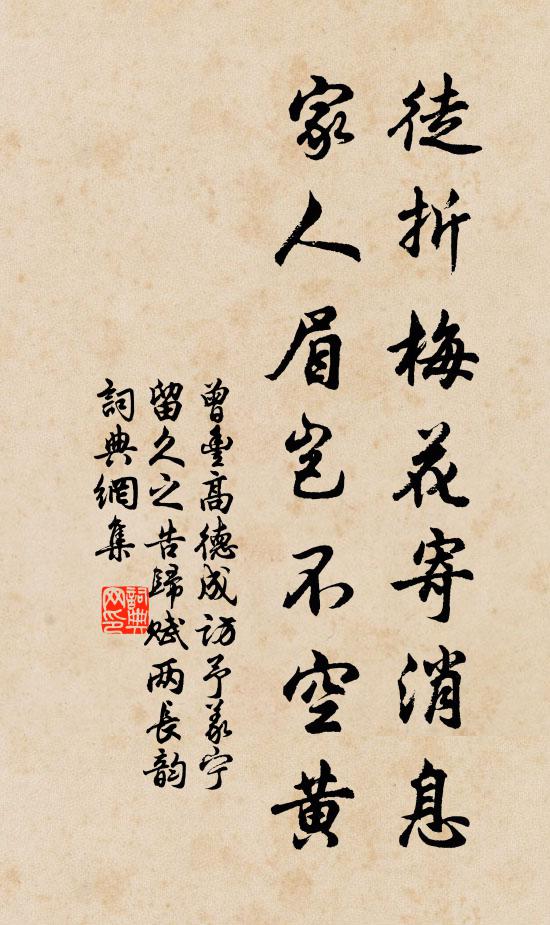 徒折梅花寄消息
家人眉岂不空黄
曾豊高德成访予义宁
留久之告歸赋两長韵
詞典網集
詞典网印